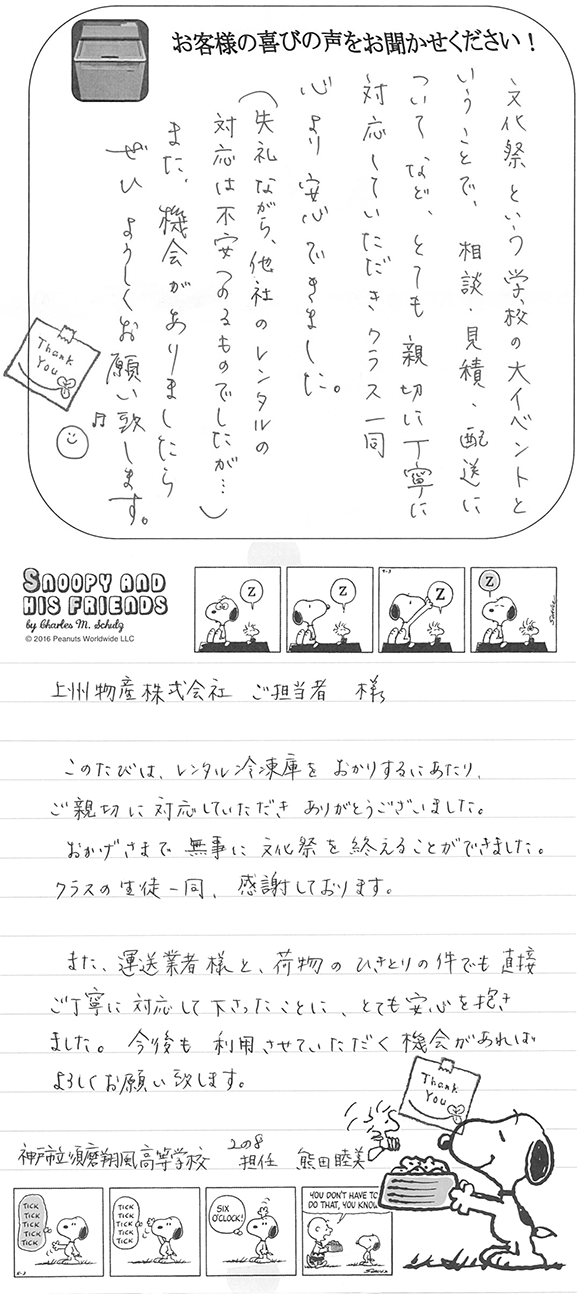 お客様の喜びの声をお聞かせください！
文化祭という学校の大イベントと
いうことで、相談・見積・配送に
ついてなど、とても親切に丁寧に
対応していただきクラス一同
心より安心できました。
（失礼ながら、他社のレンタルの
対応は不安つのるものでしたが…）
また、機会がありましたら
ぜひよろしくお願い致します。
Thank
You
SNOOPY AND
HIS FRIENDS
by Charles M. Schulz
© 2016 Peanuts Worldwide LLC
Z
Z
Z
Z
上州物産株式会社 ご担当者 様
このたびは、レンタル冷凍庫を おかりするにあたり、
ご親切に対応していただき ありがとうございました。
おかげさまで 無事に文化祭を終えることができました。
クラスの生徒一同、感謝しております。
また、運送業者様と、荷物のひきとりの件でも直接
ご丁寧に対応して下さったことに、とても安心を抱き
ました。今後も利用させていただく機会があれば
よろしくお願い致します。
Thank
You
神戸市立須磨翔風高等学校 208 担任 熊田睦美
TICK
TICK
TICK
TICK
TICK
TICK
TICK
TICK
TICK
SIX
O'CLOCK!
YOU DON'T HAVE TO
DO THAT, YOU KNOW